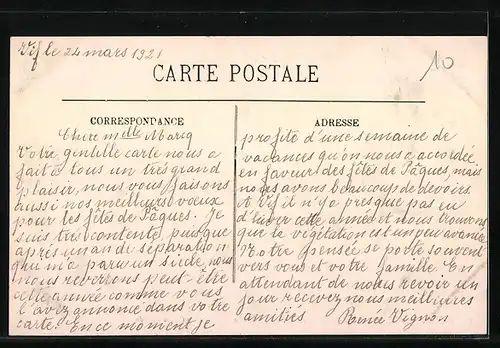 Vif le 24 mars 1921
10
CARTE POSTALE
CORRESPONDANCE
Chère melle Marcq
Votre gentille carte nous a
fait à tous un très grand
plaisir, nous vous faisons
aussi nos meilleurs vœux
pour les fêtes de Pâques. Je
suis très contente, puisque
après un an de séparation
qui m'a paru un siècle, nous
nous reverrons peut-être
cette année comme vous
l'avez annoncé dans votre
carte. En ce moment je
ADRESSE
profite d'une semaine de
vacances qu'on nous a accordée
en faveur des fêtes de Pâques, mais
nous avons beaucoup de devoirs.
A Vif il n'y a presque pas eu
d'hiver cette année et nous trouvons
que la végétation est un peu avancée
Notre pensée se porte souvent
vers vous et votre famille. En
attendant de nous revoir un
jour recevez nous meilleures
amitiés Renée Vignon